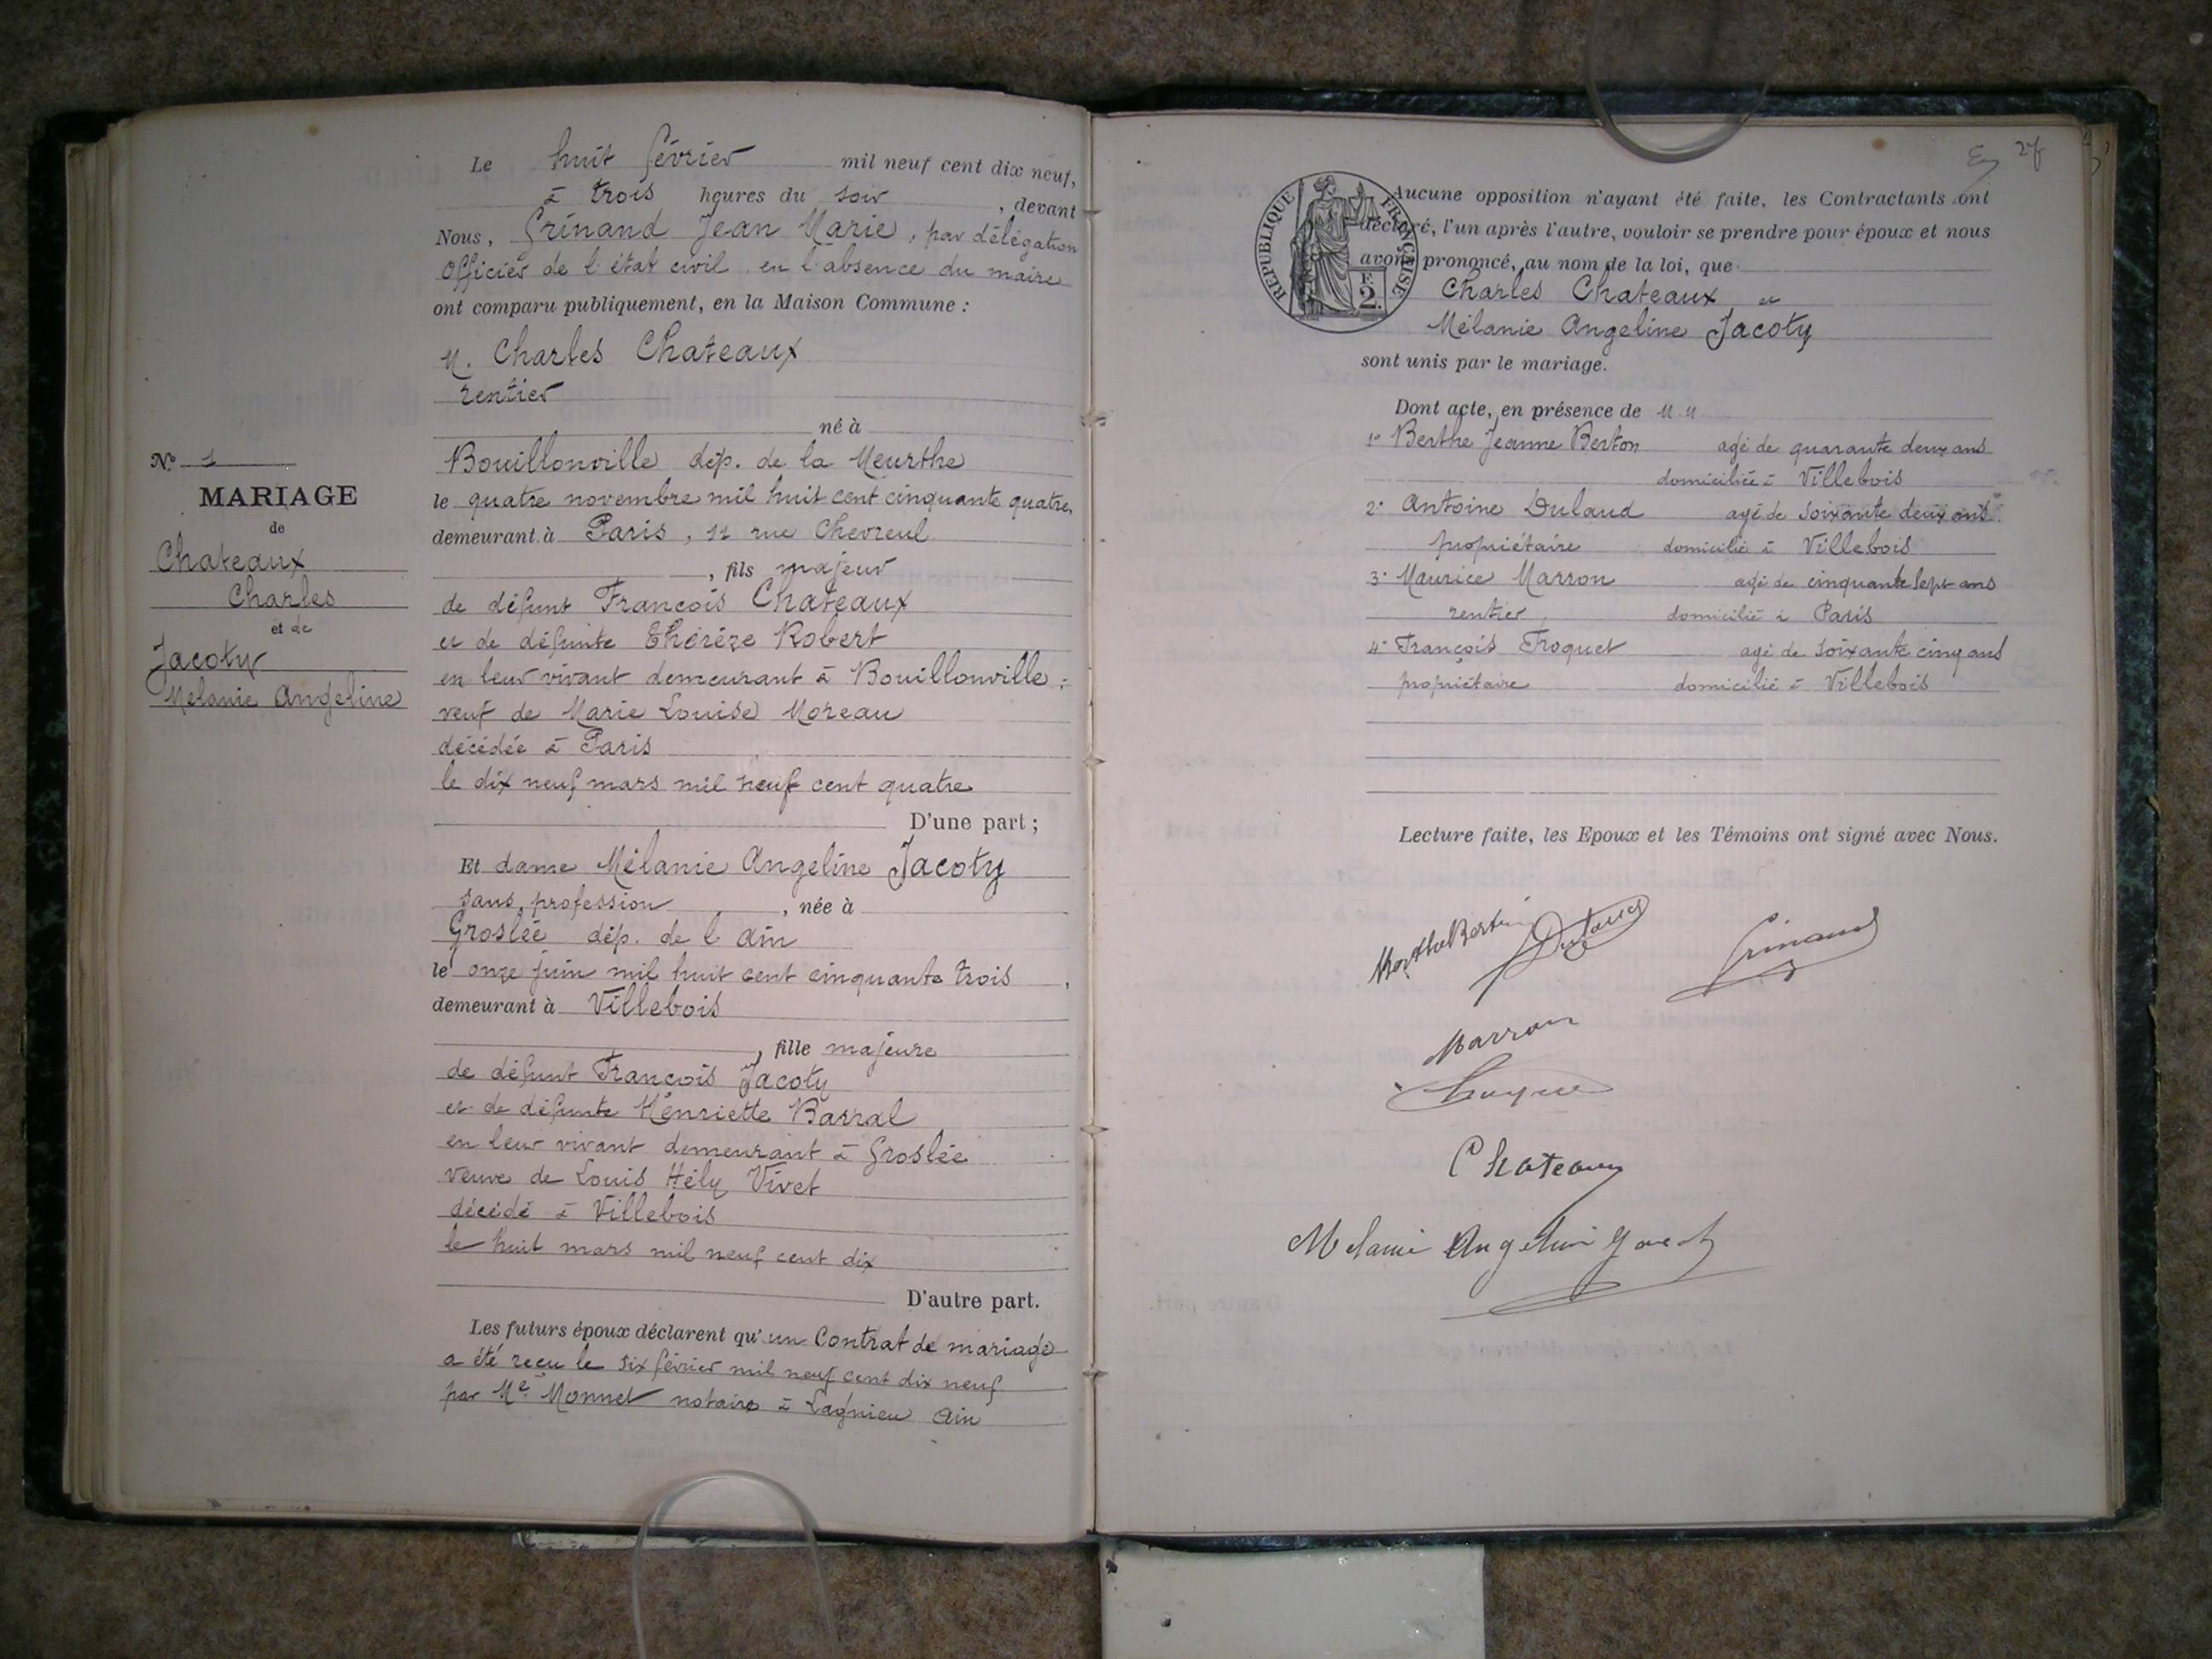 Le huit février mil neuf cent dix neuf,
à trois heures du soir, devant
Nous, Grinand Jean Marie, par délégation
officier de l'état civil en l'absence du maire
ont comparu publiquement, en la Maison Commune :
M. Charles Chateaux
rentier
né à
Bouillonville dép. de la Meurthe
le quatre novembre mil huit cent cinquante quatre,
demeurant à Paris, 11 rue Chevreul
, fils majeur
de défunt François Chateaux
et de défunte Thérèze Robert
en leur vivant demeurant à Bouillonville ;
veuf de Marie Louise Moreau
décédée à Paris
le dix neuf mars mil neuf cent quatre
D'une part ;
Et dame Mélanie Angeline Jacoty
sans profession, née à
Groslée dép. de l'ain
le onze juin mil huit cent cinquante trois,
demeurant à Villebois
, fille majeure
de défunt François Jacoty
et de défunte Henriette Barral
en leur vivant demeurant à Groslée
veuve de Louis Hély Vivet
décédé à Villebois
le huit mars mil neuf cent dix
D'autre part.
Les futurs époux déclarent qu'un Contrat de mariage
a été reçu le six février mil neuf cent dix neuf
par Me Monnet notaire à Lagnieu Ain
N° 1
MARIAGE
de
Chateaux
Charles
et de
Jacoty
Mélanie Angeline
27
RÉPUBLIQUE FRANÇAISE
F. 2.
Aucune opposition n'ayant été faite, les Contractants ont
déclaré, l'un après l'autre, vouloir se prendre pour époux et nous
avons prononcé, au nom de la loi, que
Charles Chateaux et
Mélanie Angeline Jacoty
sont unis par le mariage.
Dont acte, en présence de M.M
1° Berthe Jeanne Berton agé de quarante deux ans
domiciliée à Villebois
2° Antoine Dulaud agé de soixante deux ans
propriétaire domicilié à Villebois
3° Maurice Marron agé de cinquante sept ans
rentier domicilié à Paris
4° François Troquet agé de soixante cinq ans
propriétaire domicilié à Villebois
Lecture faite, les Epoux et les Témoins ont signé avec Nous.
Berthe Berton
Dulaud
Grinand
Marron
Chateaux
Melanie Angeline Jacoty